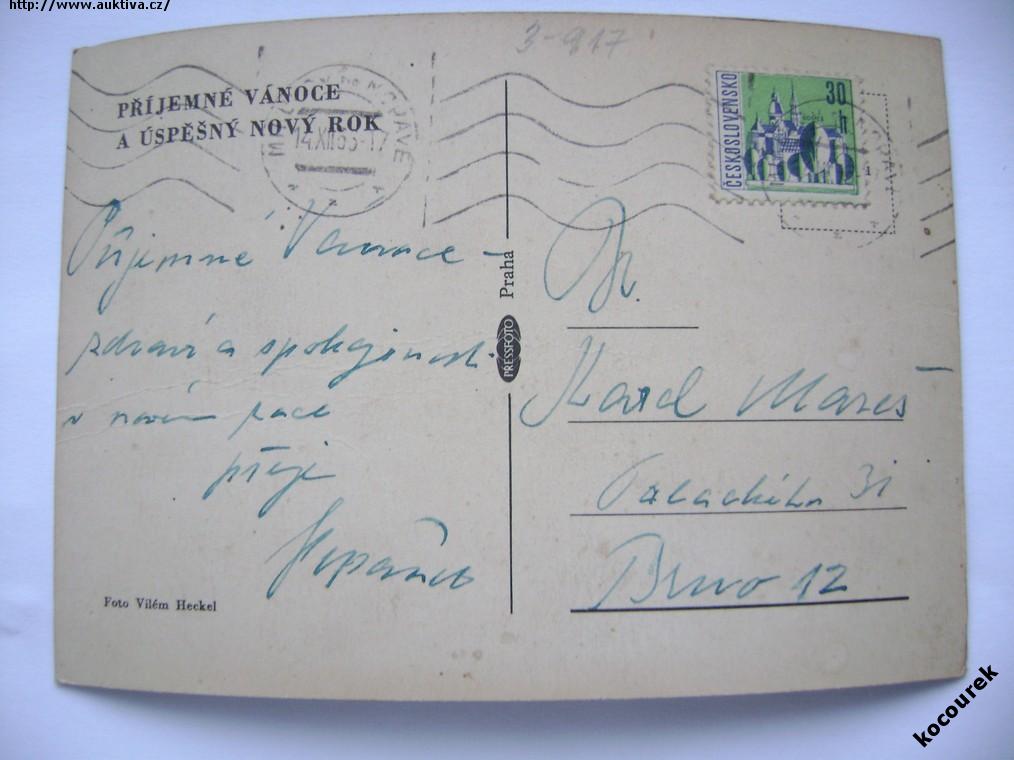 http://www.auktiva.cz/
3-917
PŘÍJEMNÉ VÁNOCE
A ÚSPĚŠNÝ NOVÝ ROK
ČESKOSLOVENSKO
30
h
Příjemné Vánoce -
zdraví a spokojenost
v novém roce
přeje
Praha
PRESSFOTO
Dr.
Karel Mareš
Palackého 31
Brno 12
Foto Vilém Heckel
kocourek